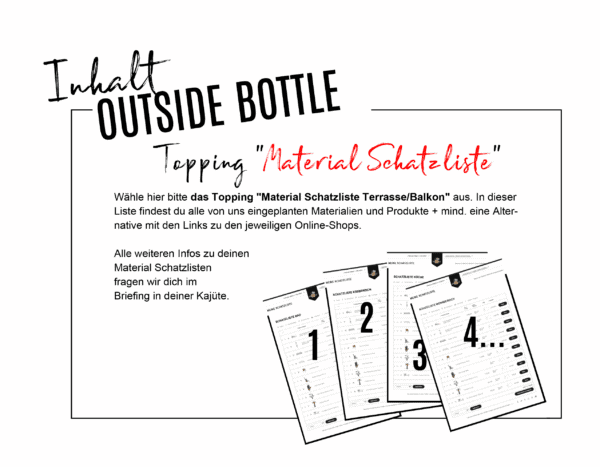 Inhalt
OUTSIDE BOTTLE
Topping "Material Schatzliste"
Wähle hier bitte das Topping "Material Schatzliste Terrasse/Balkon" aus. In dieser
Liste findest du alle von uns eingeplanten Materialien und Produkte + mind. eine Alter-
native mit den Links zu den jeweiligen Online-Shops.
Alle weiteren Infos zu deinen
Material Schatzlisten
fragen wir dich im
Briefing in deiner Kajüte.
1
2
3
4...